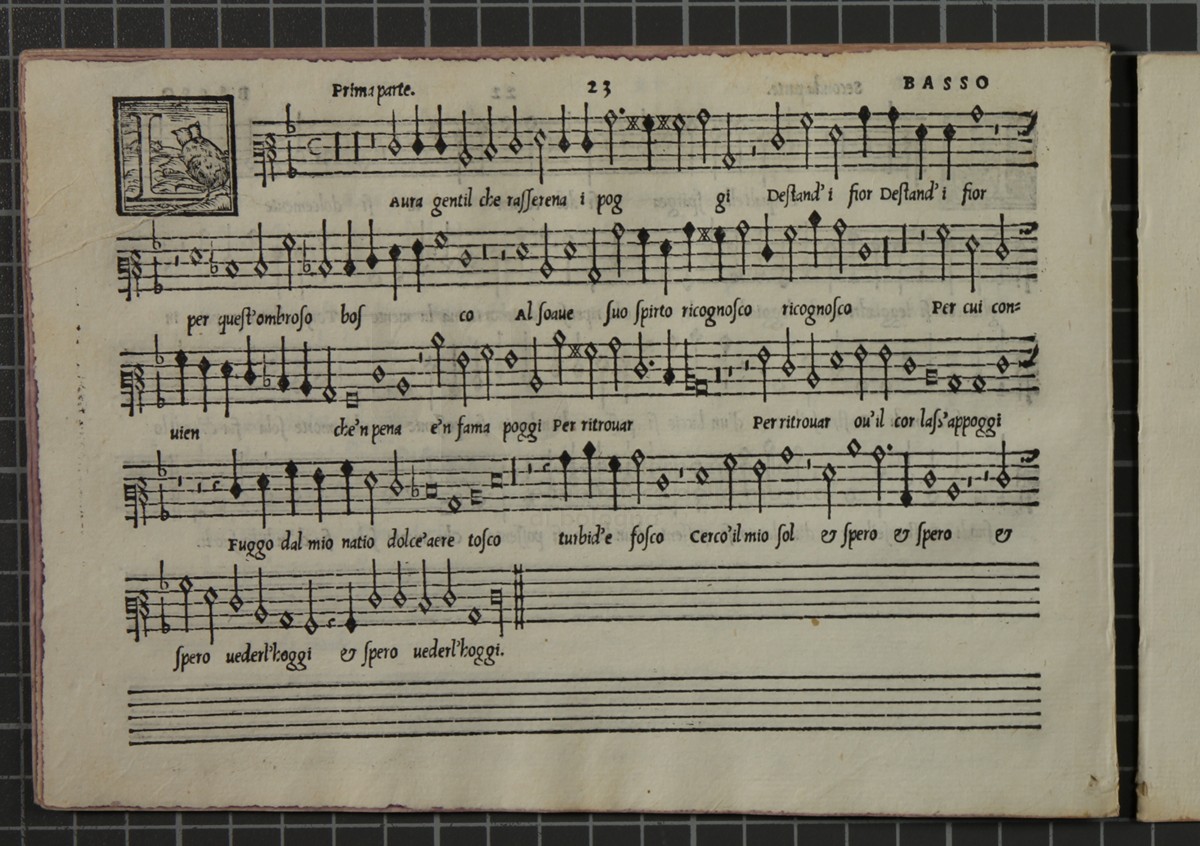 Prima parte. 23 BASSO
L Aura gentil che rasserena i pog gi Destand' i fior Destand' i fior
per quest'ombroso bos co Al soaue suo spirto ricognosco ricognosco Per cui con=
uien che'n pena e'n fama poggi Per ritrouar Per ritrouar ou'il cor lass'appoggi
Fuggo dal mio natio dolce'aere tosco turbid'e fosco Cerco'il mio sol & spero & spero &
spero uederl'hoggi & spero uederl'hoggi.